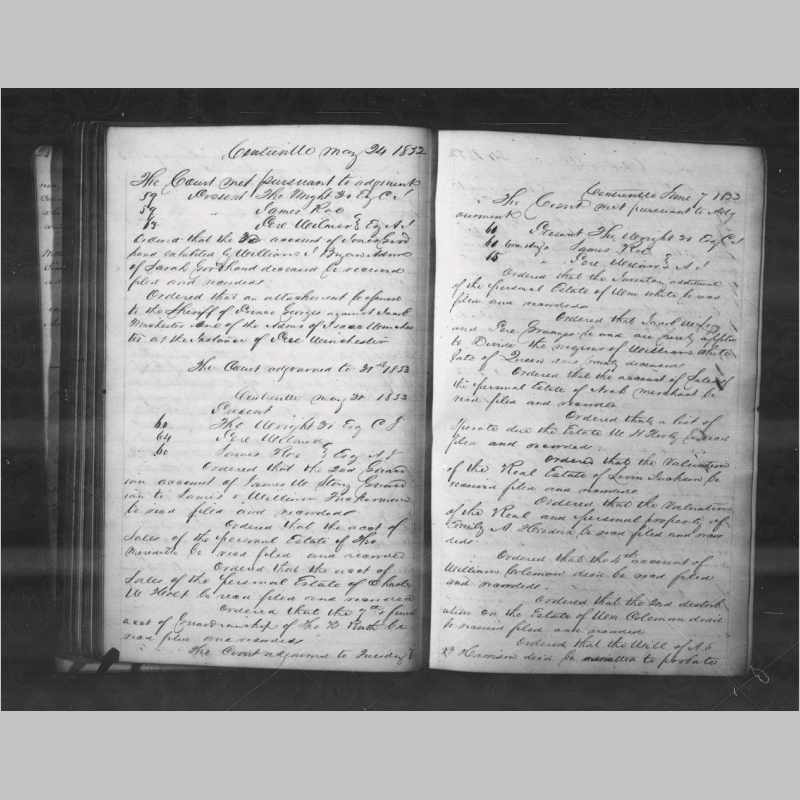 Centreville May 24 1852
The Court met pursuant to adjornment
59 Present Tho Wright 3d Esq C J
59 " James Roe
13 " Pere Wilmer } Esq A J
Ordered that the 2d account of
hand exhibited by William J
of Sarah hand deceased be received
filed and recorded
Ordered that an attachment be issued
to the Sheriff of Prince Georges against Isaac
Winchester one of the Adms of Isaac Winches
ter at the instance of Pere Winchester
The Court adjourned to 31st 1853
Centreville May 31 1853
Present
60 Tho Wright 3d Esq C J
64 Pere Wilmer
60 James Roe } Esq A J
Ordered that the 2nd Guard
ian account of James W Story Guard
ian to James & William
be read filed and recorded
Ordered that the acct of
Sales of the personal Estate of Tho
Meredith be read filed and recorded
Ordered that the acct of
Sales of the personal Estate of Charles
W Holt be read filed and recorded
Ordered that the 7th & final
acct of Guardianship of Tho B Ruth be
read filed and recorded
The Court adjourned to Tuesday
Centreville June 7 1853
The Court met pursuant to Adj
ournment
60 Present Tho Wright 3d Esq C J
60 James Roe
15 " Pere Wilmer } A J
Ordered that the Inventory additional
of the personal Estate of Wm White be
filed and recorded
Ordered that
and Pere Granger be and are hereby appt
to Divide the negroes of William White
late of Queen anns county deceased
Ordered that the account of Sales of
the personal Estate of Noah merchant be
read filed and recorded
Ordered that a list of
sperate due the Estate W H be read
filed and recorded.
Ordered that the Valuation
of the Real Estate of Levin be
received filed and recorded
Ordered that the Valuation
of the Real and personal property of
Emily A be read filed and recor
ded
Ordered that the 4th account of
William Coleman decd be read filed
and recorded
Ordered that the 2nd distrib
ution on the Estate of Wm Coleman decd
be received filed and recorded
Ordered that the Will of
Harrison decd be admitted to probate